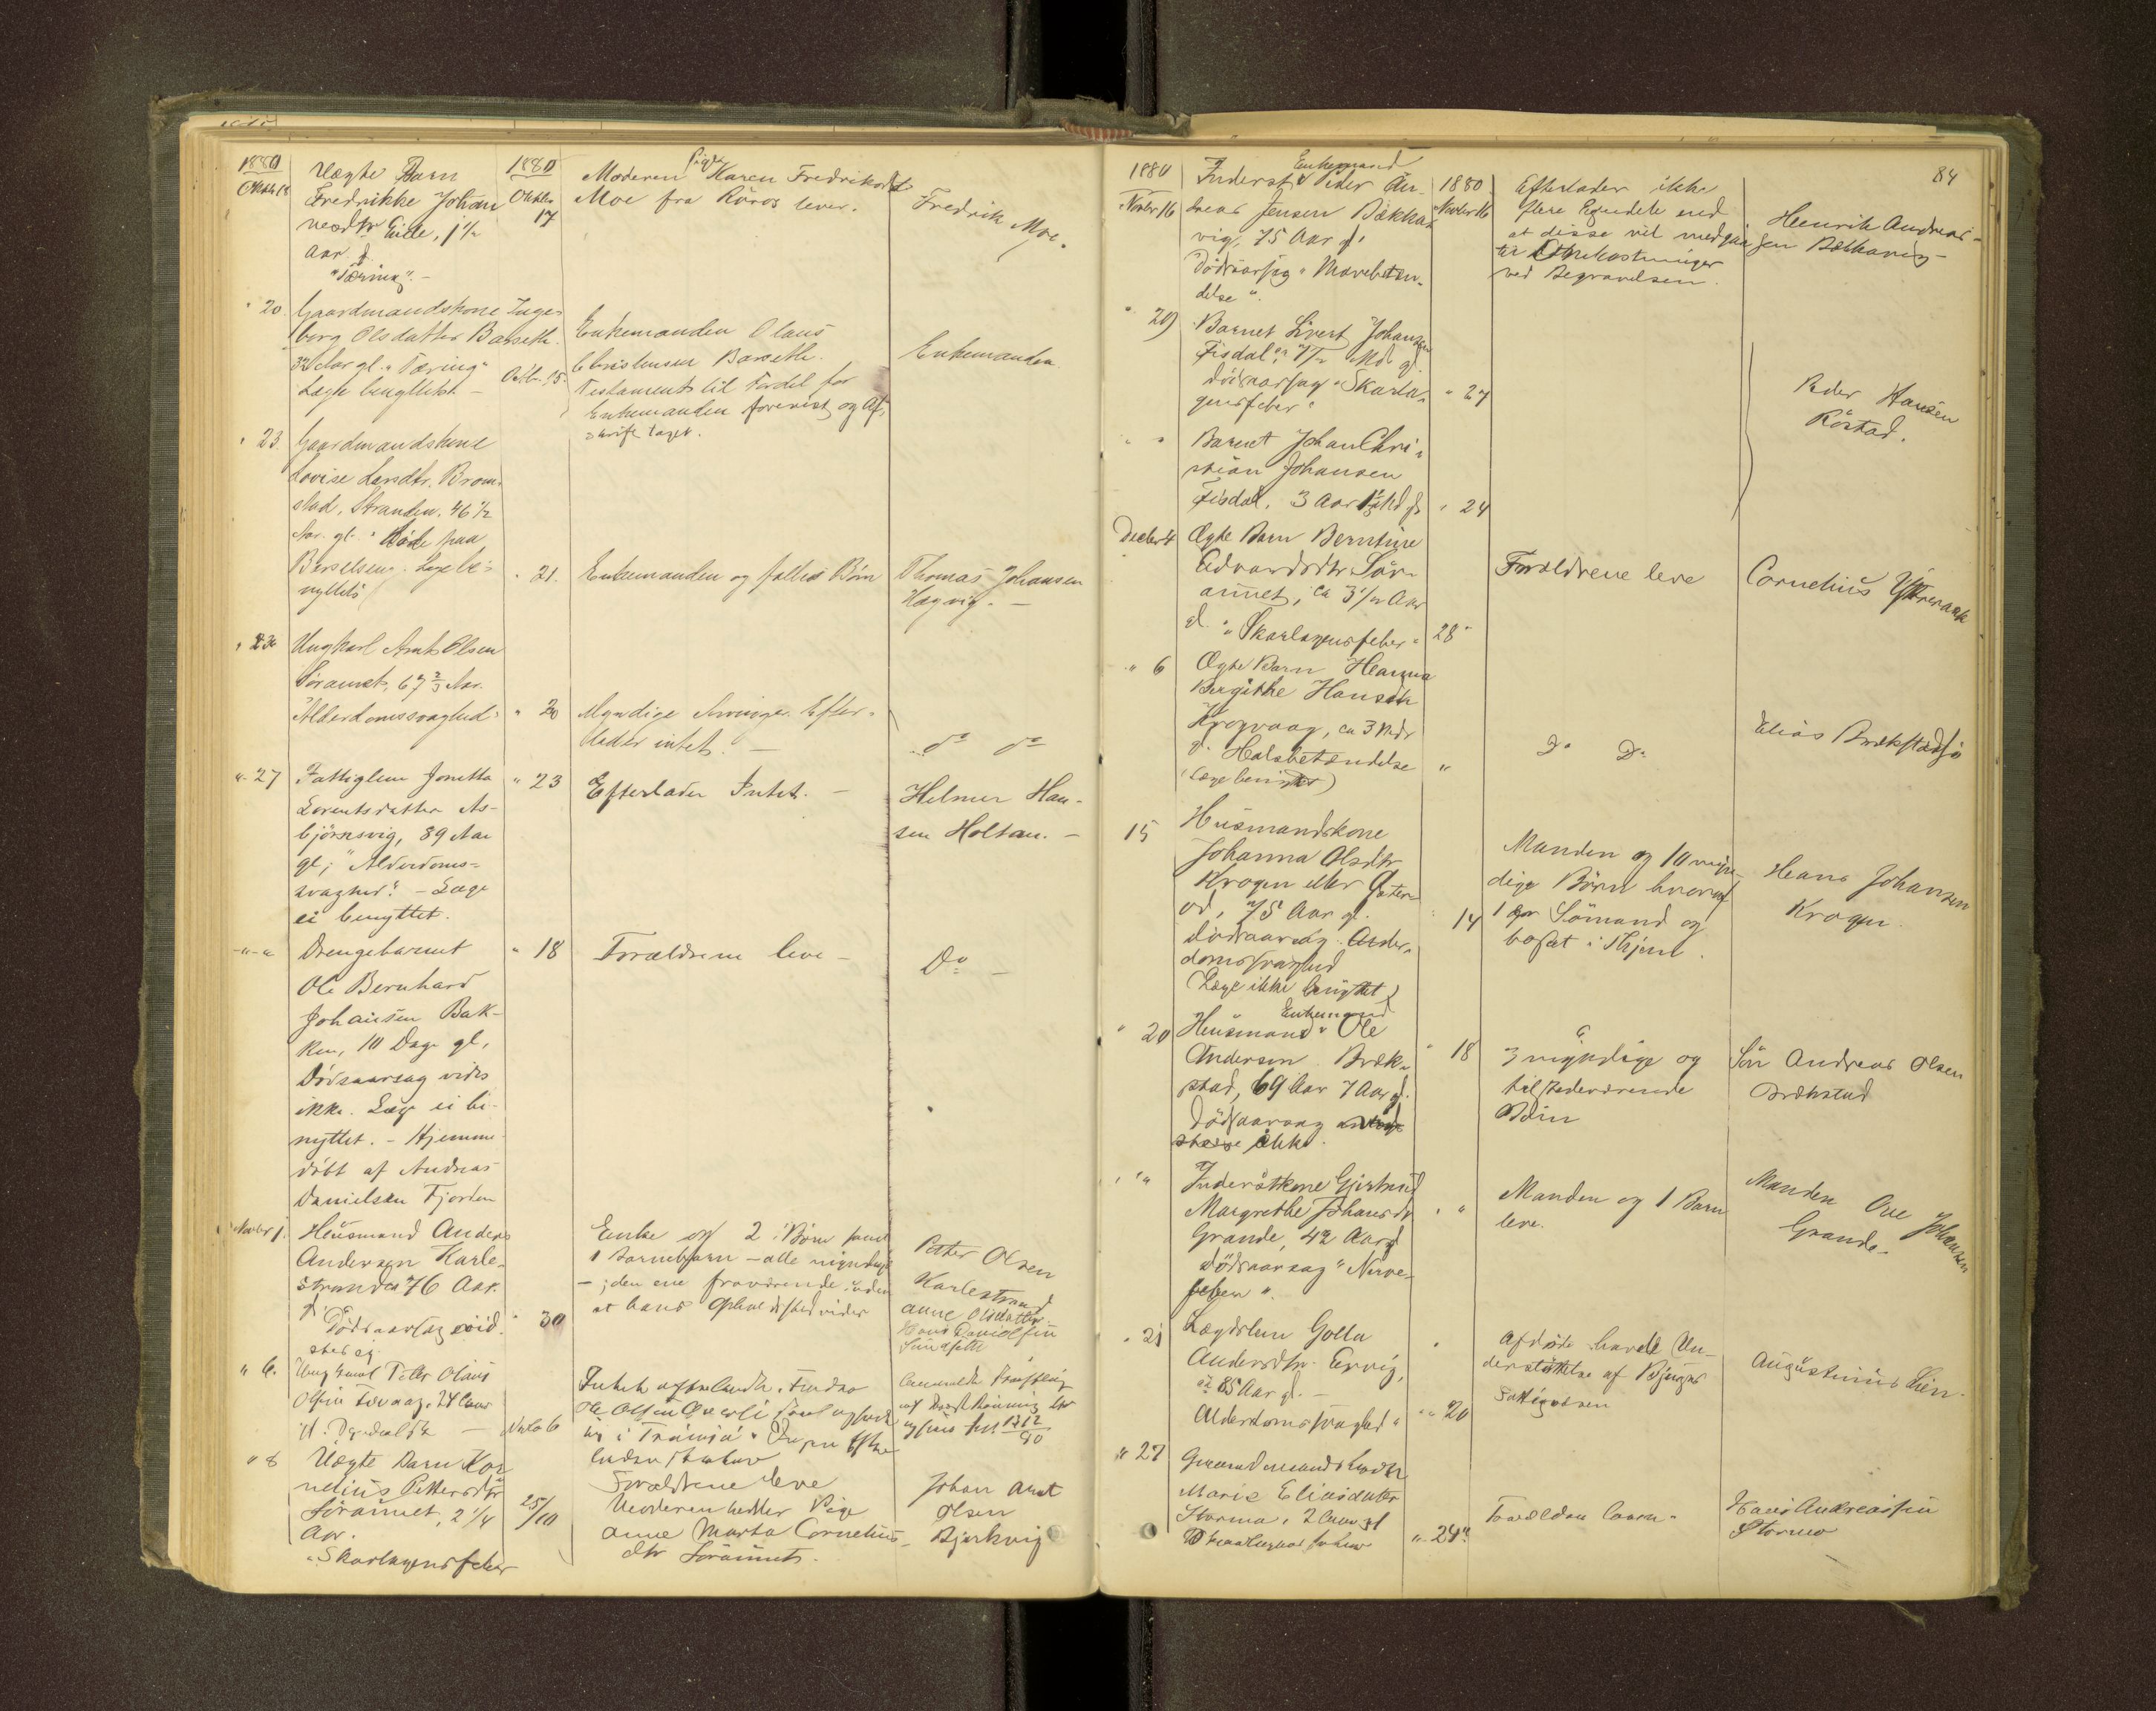 1880
Oktbr 18
Uægte Barn
Fredrikke Johan
nesdtr Eide, 1 1/2
Aar gl.
"Tæring". -
1880
Oktbr
17
Moderen Pige Karen Fredriksdtr
Moe fra Röros lever.
Fredrik Moe.
" 20.
Gaardmandskone Inge-
borg Olsdatter Barseth.
32 Aar gl. "Tæring"
Læge benyttet -
Octb. 15.
Enkemanden Olaus
Christensen Barseth.
Testament til Fordel for
Enkemanden forevist og Af-
skrift taget.
Enkemanden
" 23.
Gaardmandskone
Lovise Larsdtr. Brom-
stad, Stranden. 46 1/2
Aar gl. " Döde paa
Barselseng. Læge be-
nyttet
" 21.
Enkemanden og fælles Börn
Thomas Johansen
Hægvig. -
" 23
Ungkarl Arnt Olsen
Söraunet, 67 2/3 Aar.
Alderdomssvaghed.
" 20
Myndige Arvinger. Efter-
lader intet. -
do do
" 27
Fattiglem Jonetta
Lorentsdatter As-
björnsvig, 89 Aar
gl; "Alderdoms-
svaghed". - Læge
ei benyttet.
" 23
Efterlader Intet. -
Helmer Han-
sen Holtan. -
- " - "
Drengebarnet
Ole Bernhard
Johansen Bak-
ken, 10 Dage gl.
Dödsaarsag vides
ikke. Læge ei be-
nyttet. - Hjemme
döbt af Andreas
Danielsen Fjorden
" 18
Forældrene leve -
Do -
Novbr 1.
Husmand Anders
Andersen Karle-
strand 76 Aar.
gl.
Dödsaarsag vid-
stes ej.
" 30
Enke og 2 Börn samt
1 Barnebarn - alle myndige
- ; den ene fraværende uden
at hans Opholdssted vides
Peter Olsen
Karlestrand
Anne Olsdatter
Hans Danielsen
" 6.
Ungkarl Peter Olaus
Olsen
Novbr 6
Intet efterladt.
Ole Olsen
" 8
Uægte Barn Kor
nelius Pettersdtr
Söraunet, 2 1/4
Aar.
"Skarlagensfeber
25/10
Forældrene leve
Moderen hedder Pige
Anne Marta Cornelius-
dtr Söraunet.
Johan Arnt
Olsen
Bjerkvig
84
1880
Novbr 16
Inderst & Enkemand Peder An-
dreas Jensen Bækka
vig, 75 Aar gl.
Dödsaarsag "Mavebetæn-
delse".
1880
Novbr 16
Efterlader ikke
flere Eiendele end
at disse vil medgaa
til Omkostninger
ved Begravelsen.
Henrik Andreas-
sen Bækkavig
" 29)
Barnet Sivert Johansen
Fisdal, 7 1/2 Md gl.
Dödsaarsag "Skarla-
gensfeber"
" 27
Peder Hansen
Röstad.
" "
Barnet Johan Chri-
stian Johansen
Fisdal, 3 Aar Md gl
" 24
Decbr 4
Ægte Barn Berntine
Edvardsdtr Sör-
aunet, ca 3 1/2 Aar
gl. "Skarlagensfeber"
28
Forældrene leve
Cornelius
" 6
Ægte Barn Hanna
Bergithe Hansdtr
Krogvaag, ca 3 Mdr
gl. Halsbetændelse
(Læge benyttet)
"
Do Do
Elias Brækstadsjö
15
Husmandskone
Johanna Olsdtr
Krogen eller
75 Aar gl.
Dödsaarsag. Alder-
domssvaghed
(Læge ikke benyttet)
14
Manden og 10 myn-
dige Börn hvoraf
1 er Sömand og
bosat i Skjern.
Hans Johansen
Krogen
" 20
Husmand & Enkemand Ole
Andersen Bræk-
stad, 69 Aar gl.
Dödsaarsag
ikke.
" 18
3 myndige og
tilstedeværende
Börn
Sön Andreas Olsen
Brækstad
" "
Inderstkone Gjertrud
Margrethe Johansdtr
Grande, 42 Aar gl
Dödsaarsag "Nerve-
feber".
" "
Manden og 1 Barn
leve.
Manden Ole Johansen
Grande.
" 21
Lægdslem Golla
Andersdtr. Ervig,
85 Aar gl. -
Alderdomssvaghed"
" 20
Afdöde havde Un-
derstöttelse af Bjugns
Fattigvæsen
Augustinus Lien.
" 27
Marie Eliasdatter
Stormo, 2 Aar gl
Skarlagensfeber
" 24"
Forældre leve.
Hans Andreassen
Stormo